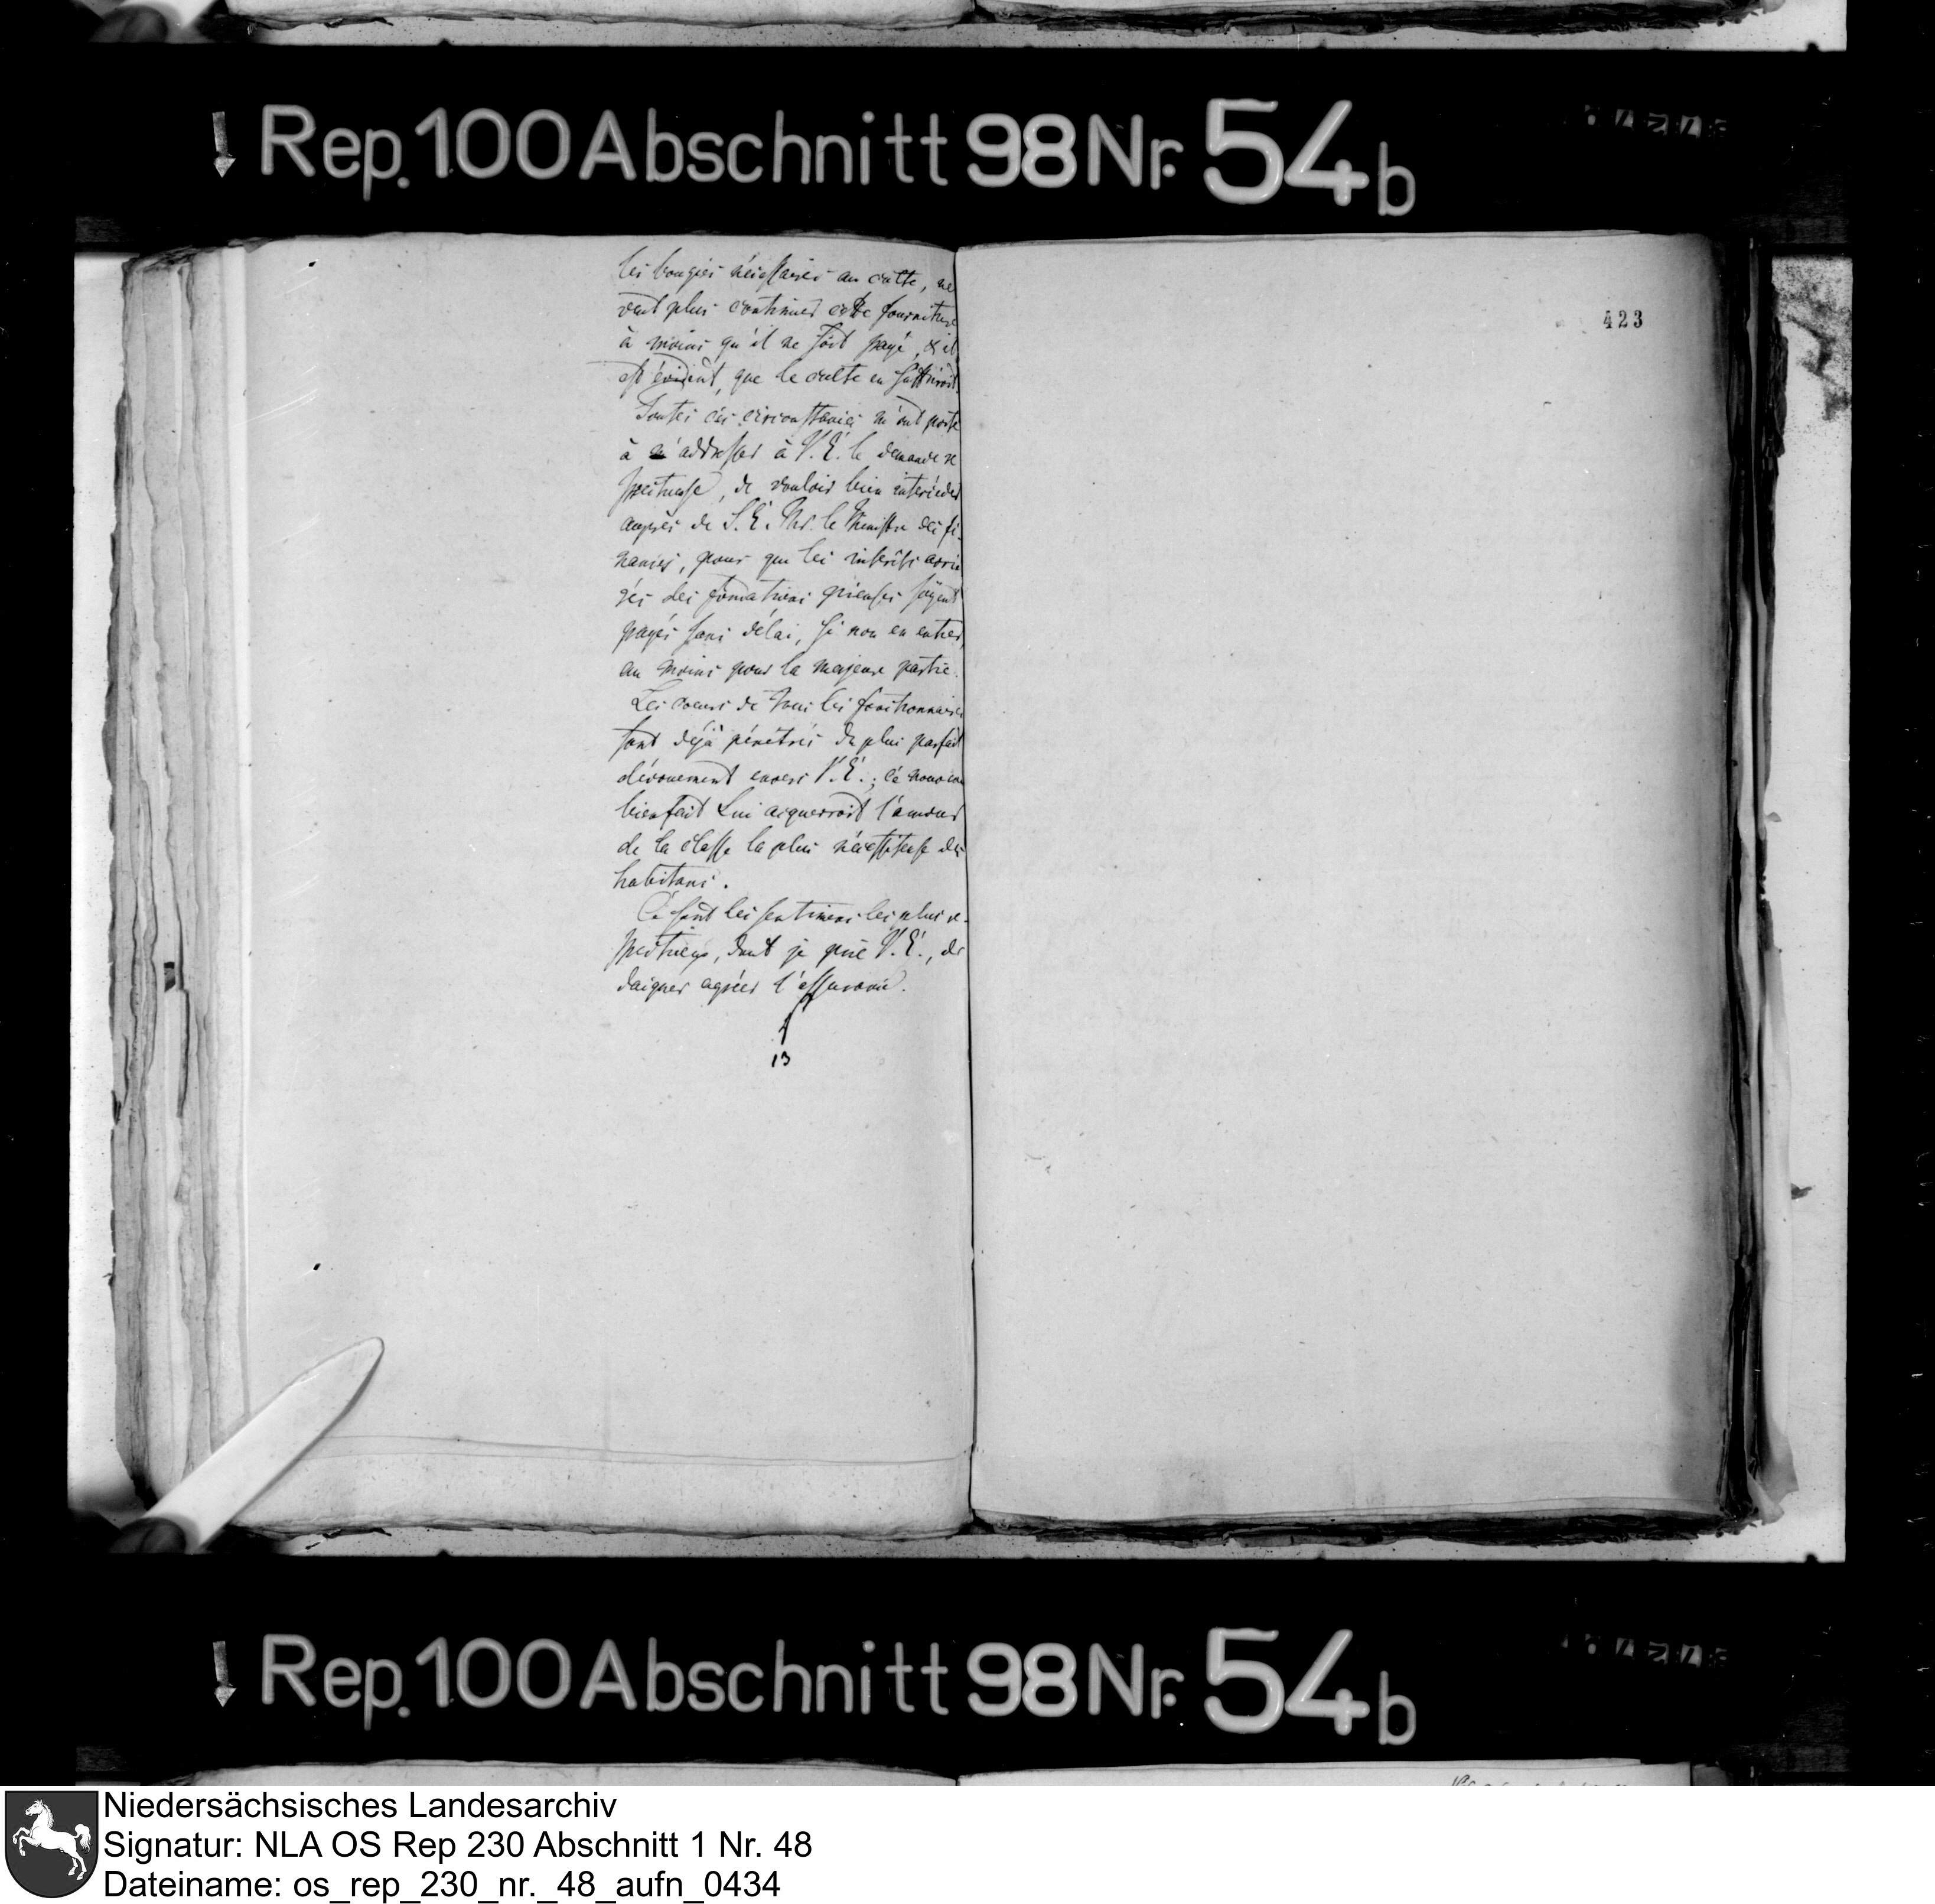 Rep. 100 Abschnitt 98 Nr. 54b
les bougies nécessaires au culte, ne
veut plus continuer cette fourniture
à moins qu'il ne soit payé, & il
est évident, que le culte en souffriroit.
Toutes ces circonstances m'ont porté
à m'addresser à V. E. la demande re
spectueuse, de vouloir bien interceder
auprès de S. E. Mr. le Ministre des fi-
nances, pour que les intérêts arrié
rés des fondations pieuses soyent
payés sans délai, si non en entier,
au moins pour la majeure partie.
Les coeurs de tous les fonctionnaires
sont déjà pénétrés du plus parfait
dévouement envers V. E.; ce nouveau
bienfait Lui acquerroit l'amour
de la classe la plus nécessiteuse des
habitans.
Ce sont les sentimens les plus re-
spectueux, dont je prie V. E., de
daigner agréer l'assurance.
13
423
Rep. 100 Abschnitt 98 Nr. 54b
Niedersächsisches Landesarchiv
Signatur: NLA OS Rep 230 Abschnitt 1 Nr. 48
Dateiname: os_rep_230_nr._48_aufn_0434